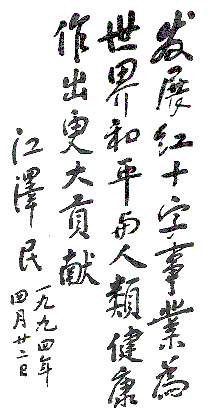 发展红十字事業為
世界和平与人類健康
作出更大貢献
江澤民
一九九四年
四月廿二日